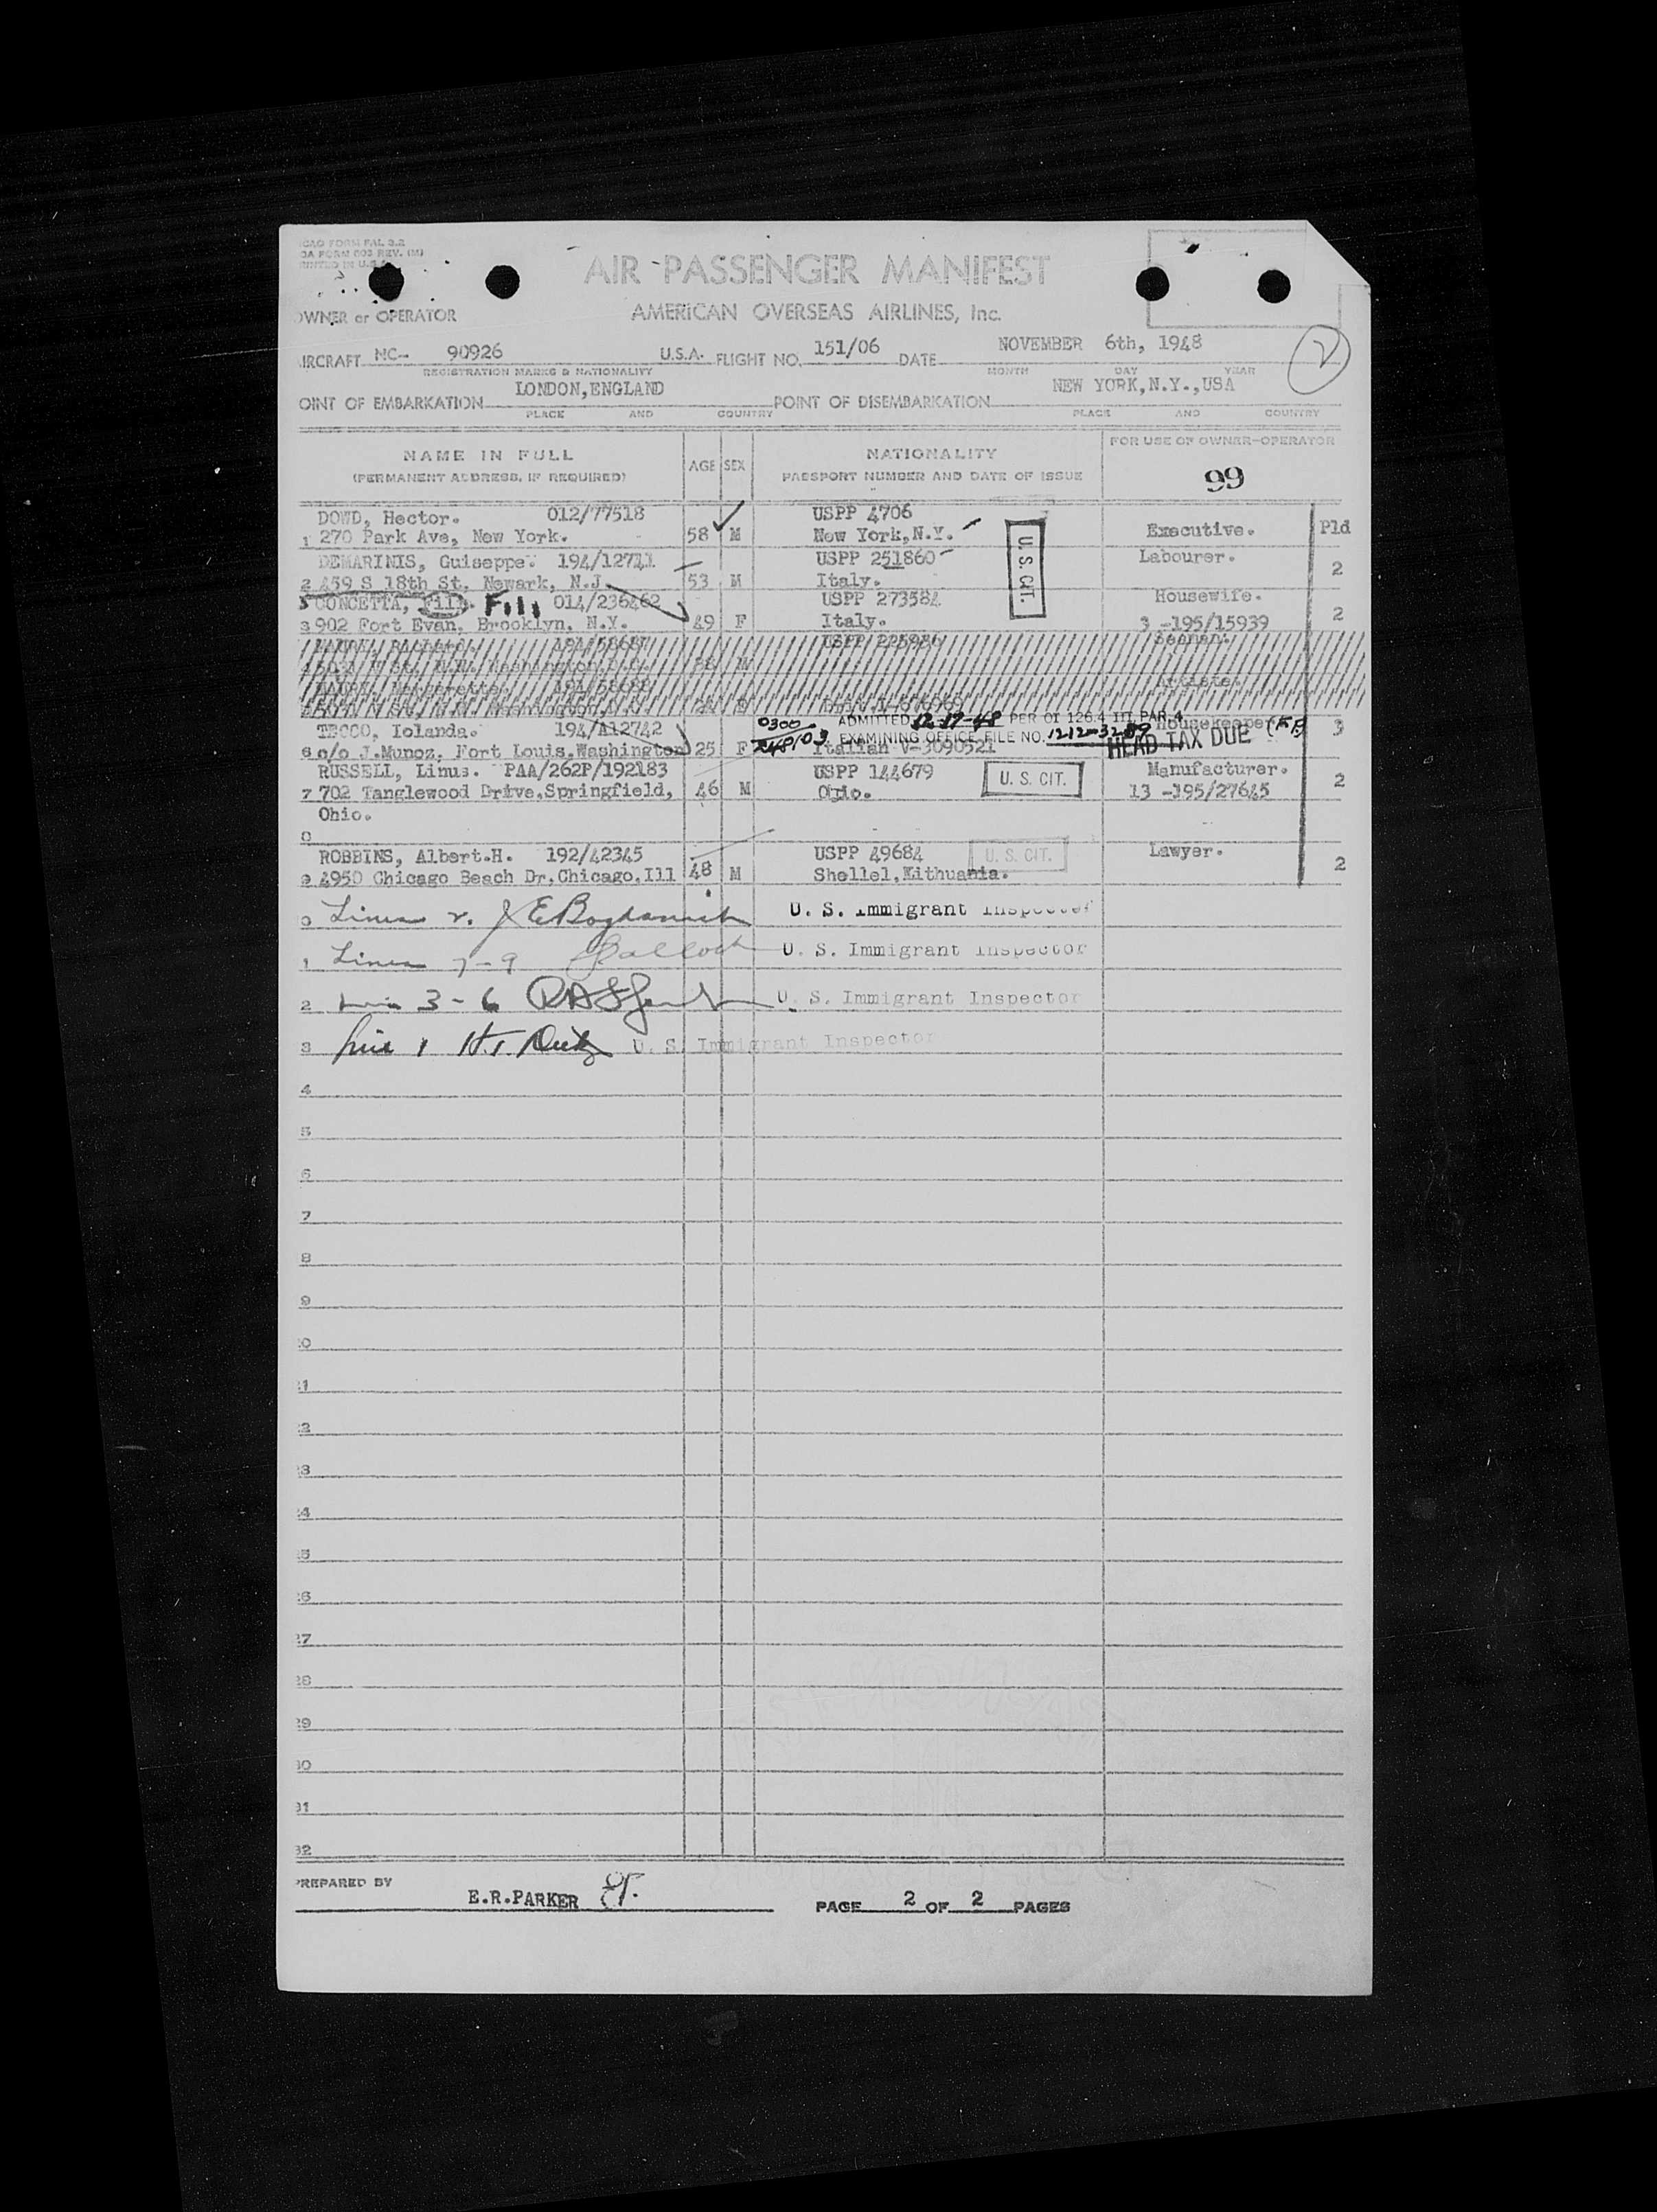 ICAO FORM FAL 3.2
OA FORM 003 REV. (M)
PRINTED IN U.S.A.
AIR PASSENGER MANIFEST
OWNER or OPERATOR
AMERICAN OVERSEAS AIRLINES, Inc.
AIRCRAFT NC- 90926 U.S.A. FLIGHT NO. 151/06 DATE NOVEMBER 6th, 1948
REGISTRATION MARKS & NATIONALITY MONTH DAY YEAR
2
LONDON,ENGLAND NEW YORK,N.Y.,USA
POINT OF EMBARKATION POINT OF DISEMBARKATION
PLACE AND COUNTRY PLACE AND COUNTRY
NAME IN FULL
(PERMANENT ADDRESS, IF REQUIRED)
AGE SEX
NATIONALITY
PASSPORT NUMBER AND DATE OF ISSUE
FOR USE OF OWNER-OPERATOR
99
DOWD, Hector. 012/77518 USPP 4706
1 270 Park Ave, New York. 58 M New York,N.Y. Executive. Pld
DEMARINIS, Guiseppe. 194/12711 USPP 251860 Labourer.
2 459 S 18th St. Newark, N.J. 53 M Italy. 2
U.S. CIT.
CONCETTA, Fili. Fili 014/236462 USPP 273584 Housewife.
3 902 Fort Evan, Brooklyn, N.Y. 49 F Italy. 3 -195/15939 2
MAURY, Richard. 191/58687 USPP 225936 Seaman.
Washington D.C. 38 M
MAURY, Margerette. 191/58688 Artiste.
Washington D.C. F
0300 ADMITTED 12-17-48 PER OI 126.4 III PAR. 4
TECCO, Iolanda. 194/112742 Housekeeper
EXAMINING OFFICE FILE NO. 1212-3289
6 c/o J.Munoz, Fort Louis.Washington 25 F Italian V-3090521 HEAD TAX DUE 3
RUSSELL, Linus. PAA/262P/192183 USPP 144679 Manufacturer.
7 702 Tanglewood Drive,Springfield, 46 M Ohio. U. S. CIT. 13 -195/27645 2
Ohio.
ROBBINS, Albert.H. 192/42345 USPP 49684 U. S. CIT. Lawyer.
9 4950 Chicago Beach Dr.Chicago,Ill 48 M Shellel,Lithuania. 2
0 Lines 2. J E Bogdanich U. S. Immigrant Inspector
1 Lines 7-9 U. S. Immigrant Inspector
2 3-6 U. S. Immigrant Inspector
3 Line 1 U. S. Immigrant Inspector
4
5
6
7
8
9
20
21
22
23
24
25
26
27
28
29
30
31
32
PREPARED BY
E.R.PARKER
PAGE 2 OF 2 PAGES